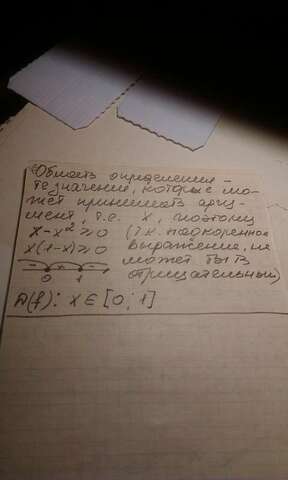 Область определения -
те значение, которые мо-
жет принимать аргу-
мент, т.е. x, поэтому
x - x² ≥ 0 (т.к. подкоренное
x(1-x) ≥ 0 выражение, не
- + - может быть
0 1 отрицательный)
D(f): x ∈ [0; 1]